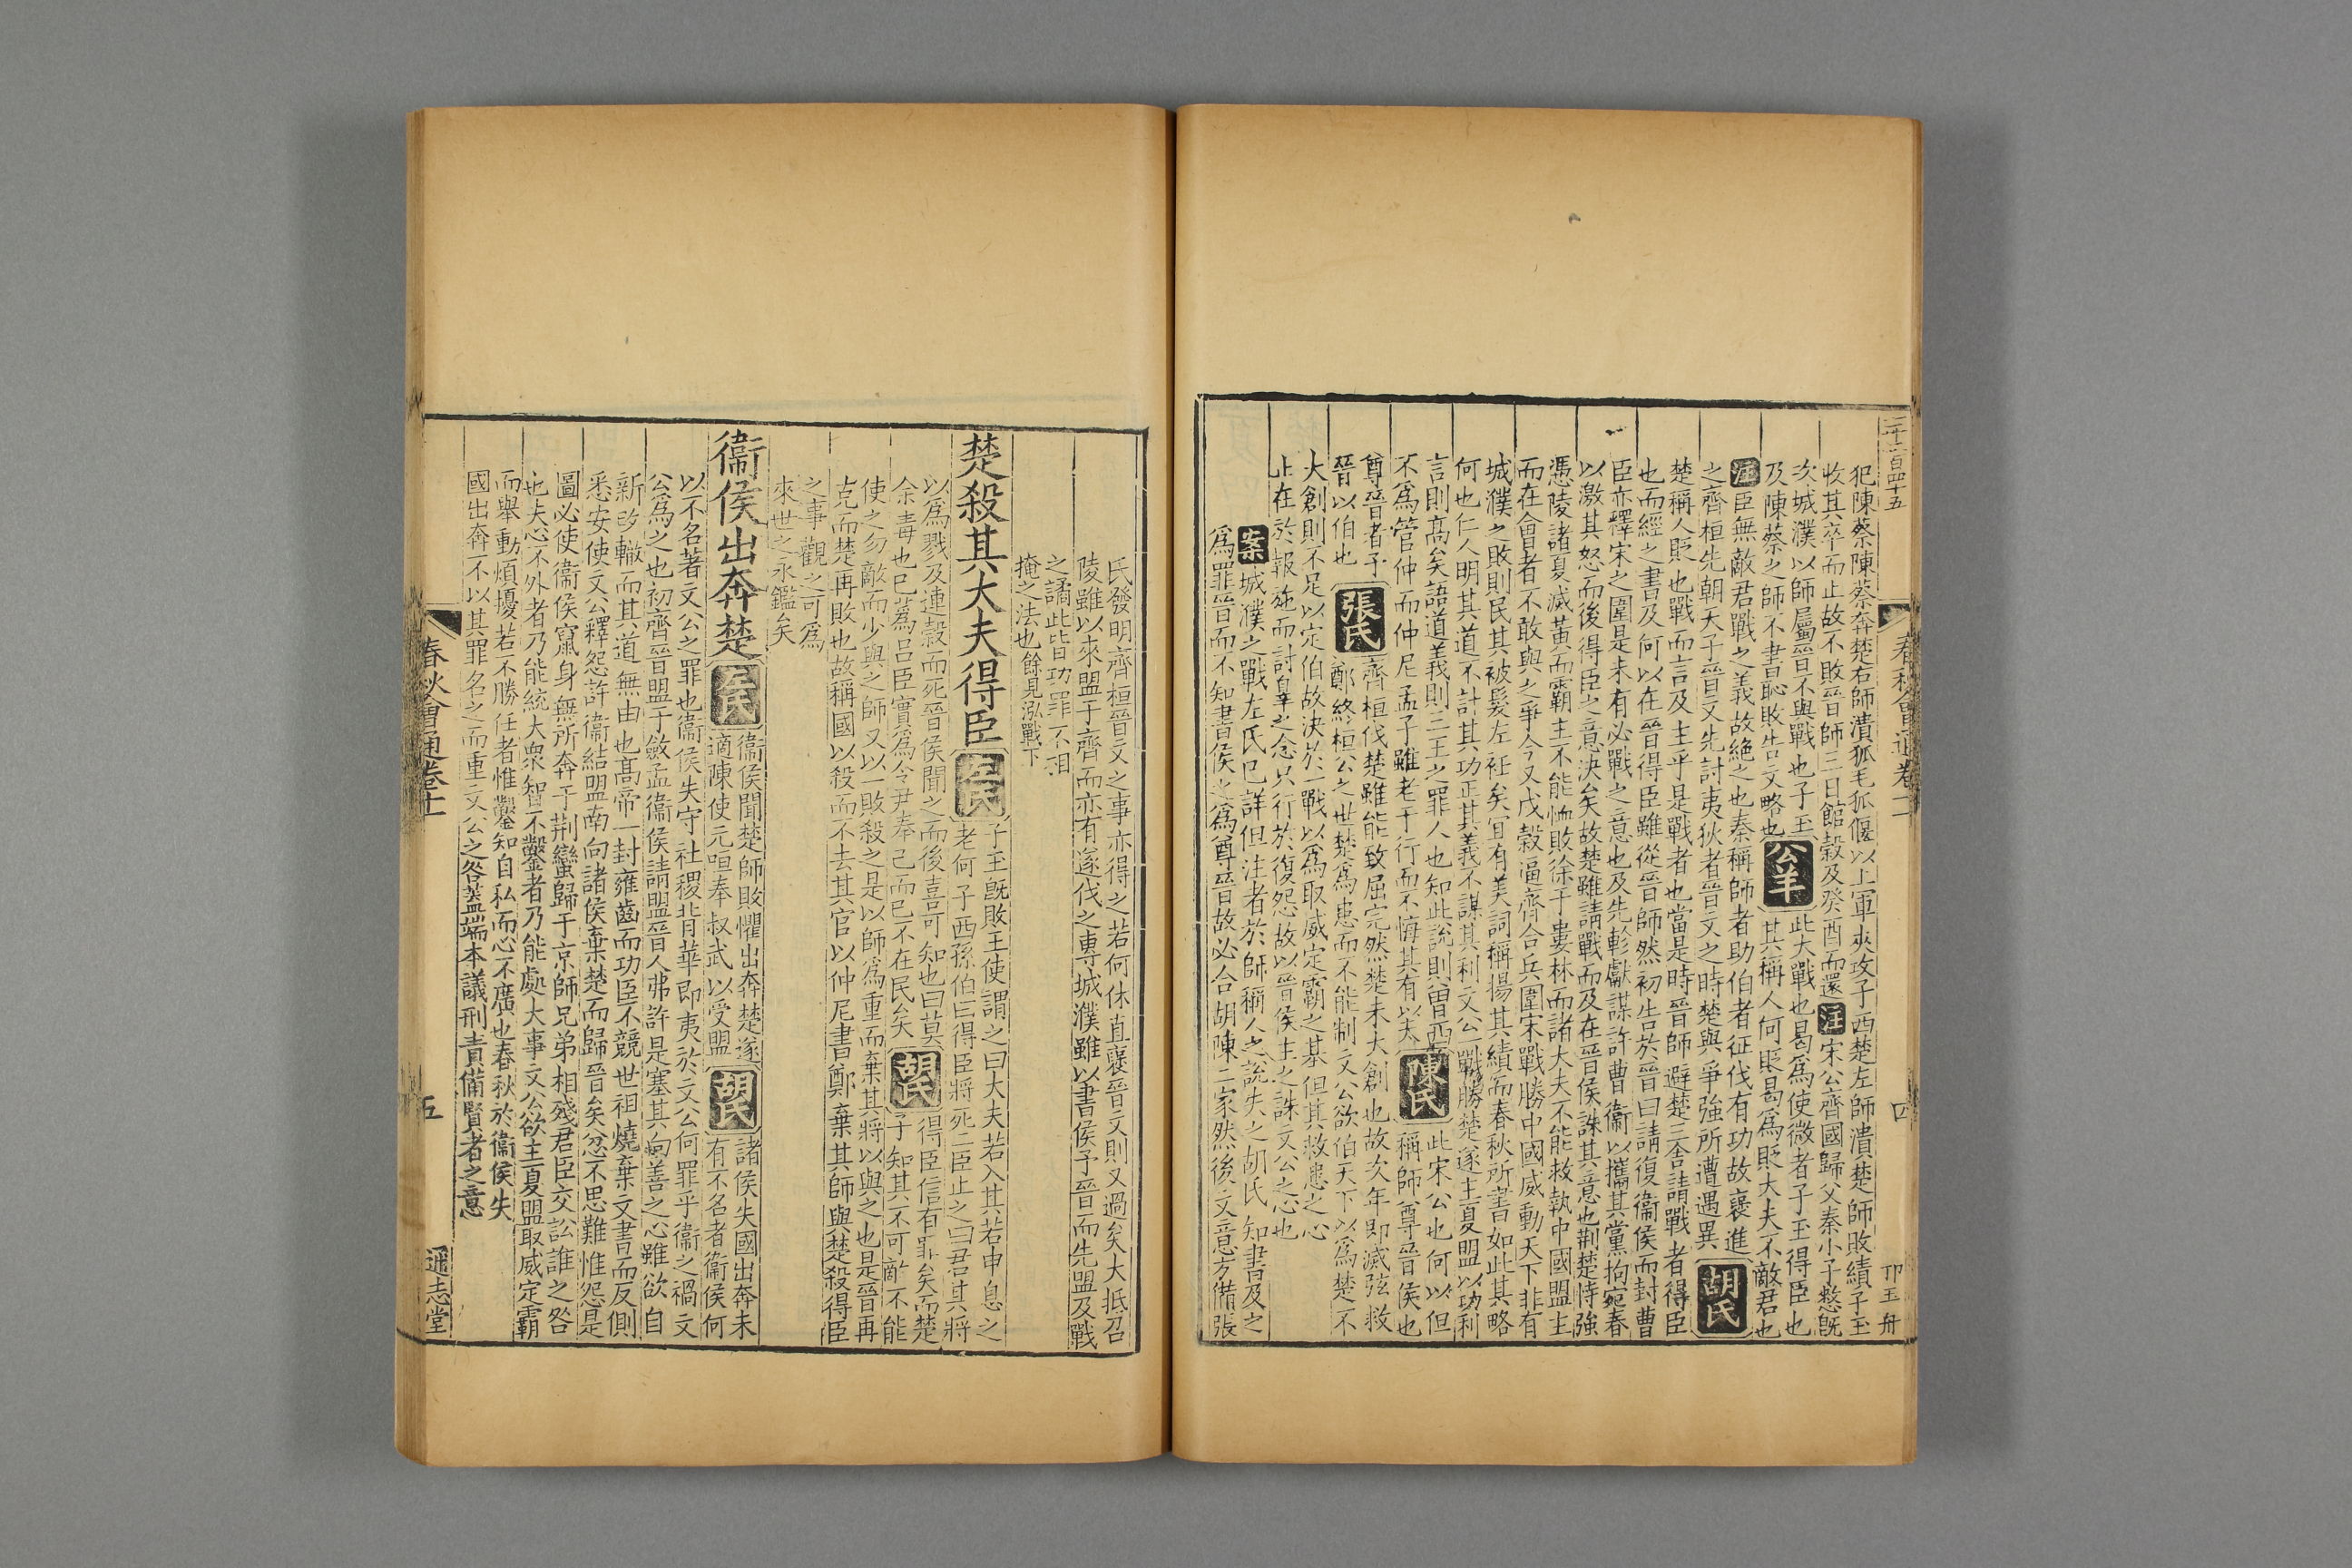 二千二百四十五
春秋會通卷十一
四
卭玉舟
犯陳蔡陳蔡奔楚右師潰狐毛狐偃以上軍夾攻子西楚左師潰楚師敗績子玉
收其卒而止故不敗晉師三日館穀及癸酉而還
注
宋公齊國歸父秦小子憗旣
次城濮以師屬晉不與戰也子玉得臣也
及陳蔡之師不書恥敗告文略也
公羊
此大戰也曷爲使微者子玉得臣也
其稱人何貶曷爲貶大夫不敵君也
注
臣無敵君戰之義故絶之也秦稱師者助伯者征伐有功故襃進
之齊桓先朝天子晉文先討夷狄者晉文之時楚與爭強所遭遇異
胡氏
楚稱人貶也戰而言及主乎是戰者也當是時晉師避楚三舍請戰者得臣
也而經之書及何以在晉得臣雖從晉師然初告於晉曰請復衞侯而封曹
臣亦釋宋之圍是未有必戰之意也及先軫獻謀許曹衞以攜其黨拘宛春
以激其怒而後得臣之意決矣故楚雖請戰而及在晉侯誅其意也荆楚恃強
憑陵諸夏滅黃而霸主不能恤敗徐于婁林而諸大夫不能救執中國盟主
而在會者不敢與之爭今又戍穀逼齊合兵圍宋戰勝中國威動天下非有
城濮之敗則民其被髮左衽矣宜有美詞稱揚其績而春秋所書如此其略
何也仁人明其道不計其功正其義不謀其利文公一戰勝楚遂主夏盟以功利
言則高矣語道義則三王之罪人也知此說則曽西
不爲管仲而仲尼孟子雖老于行而不悔其有以夫
陳氏
此宋公也何以但
稱師尊晉侯也
尊晉者予
晉以伯也
張氏
齊桓伐楚雖能致屈完然楚未大創也故次年即滅弦救
鄭終桓公之世楚爲患而不能制文公欲伯天下以爲楚不
大創則不足以定伯故決於一戰以爲取威定霸之基但其救患之心
止在於報施而討辠之念只行於復怨故以晉侯主之誅文公之心也
案
城濮之戰左氏已詳但注者於師稱人之說失之胡氏知書及之
爲罪晉而不知書侯之爲尊晉故必合胡陳二家然後文意方備張
氏發明齊桓晉文之事亦得之若何休直襃晉文則又過矣大抵召
陵雖以來盟于齊而亦有遂伐之專城濮雖以書侯予晉而先盟及戰
之譎此皆功罪不相
掩之法也餘見泓戰下
楚殺其大夫得臣
左氏
子玉旣敗王使謂之曰大夫若入其若申息之
老何子西孫伯曰得臣將死二臣止之曰君其將
以爲戮及連穀而死晉侯聞之而後喜可知也曰莫
余毒也已蔿呂臣實爲令尹奉己而已不在民矣
胡氏
得臣信有罪矣而楚
子知其不可敵不能
使之勿敵而少與之師又以一敗殺之是以師爲重而棄其將以與之也是晉再
克而楚再敗也故稱國以殺而不去其官以仲尼書鄭棄其師與楚殺得臣
之事觀之可爲
來世之永鑑矣
衞侯出奔楚
左氏
衞侯聞楚師敗懼出奔楚遂
適陳使元咺奉叔武以受盟
胡氏
諸侯失國出奔未
有不名者衞侯何
以不名著文公之罪也衞侯失守社稷背華即夷於文公何罪乎衞之禍文
公爲之也初齊晉盟于斂盂衞侯請盟晉人弗許是塞其向善之心雖欲自
新改轍而其道無由也高帝一封雍齒而功臣不競世祖燒棄文書而反側
悉安使文公釋怨許衞結盟南向諸侯棄楚而歸晉矣忿不思難惟怨是
圖必使衞侯竄身無所奔于荆蠻歸于京師兄弟相殘君臣交訟誰之咎
也夫心不外者乃能統大衆智不鑿者乃能處大事文公欲主夏盟取威定霸
而舉動煩擾若不勝任者惟鑿知自私而心不廣也春秋於衞侯失
國出奔不以其罪名之而重文公之咎蓋端本議刑責備賢者之意
春秋會通卷十一
五
通志堂